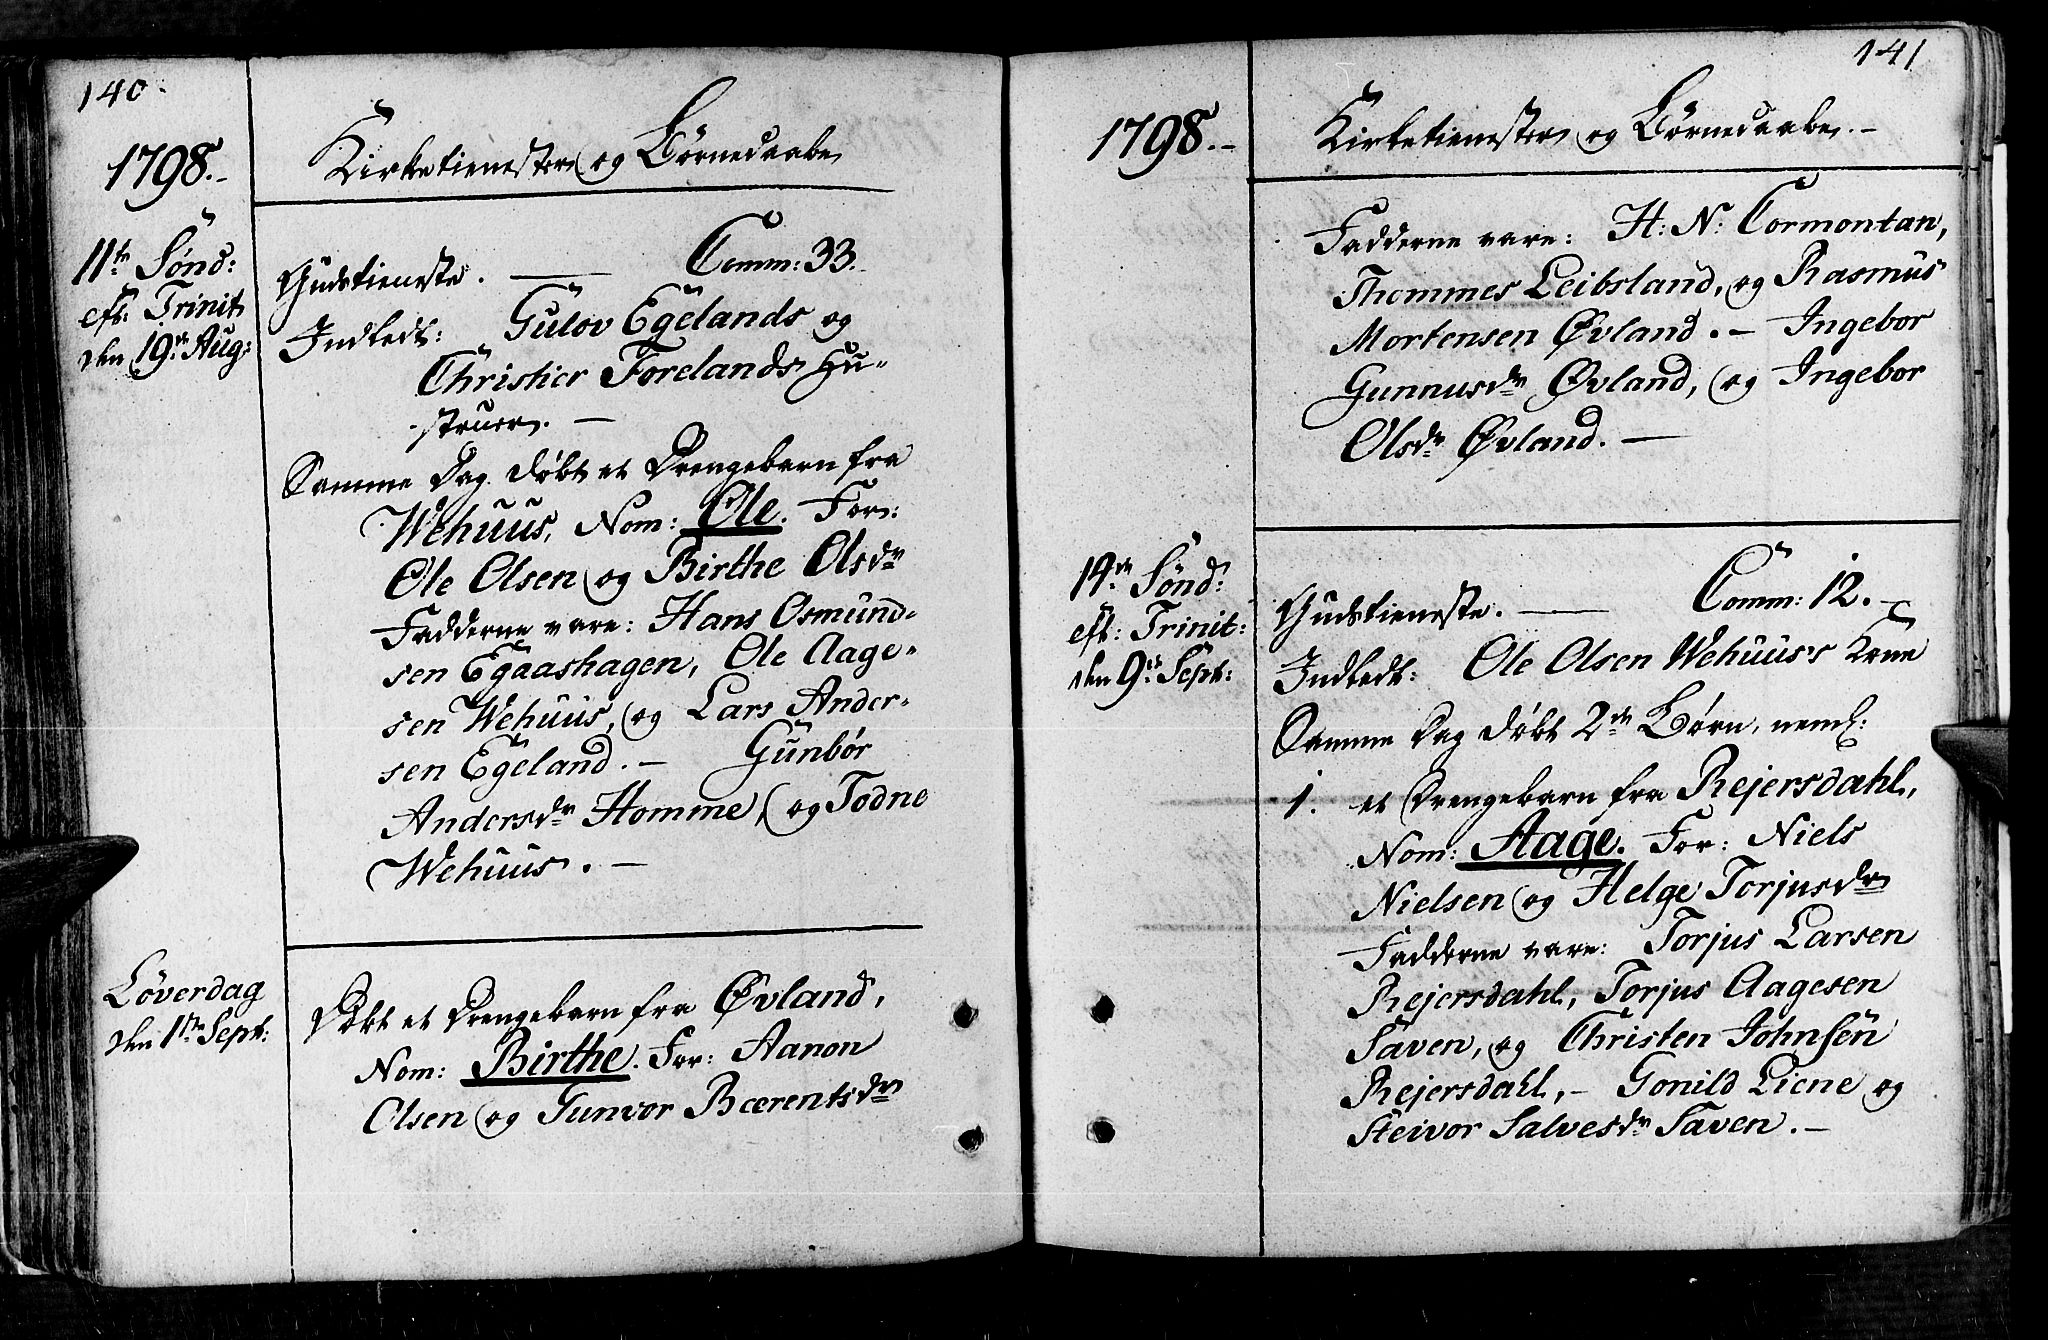 140.
1798.-
Kirketienester og Børnedaabe
11te Sønd:
eft: Trinit
den 19de Aug:
Gudstieneste. — Comm: 33.
Indledt: Gulov Egelands og
Christier Forelands Hu-
struer. —
Samme Dag døbt et Drengebarn fra
Wehuus, Nom: Ole. For:
Ole Olsen og Birthe Olsdr
Fadderne vare: Hans Osmund-
sen Egaashagen, Ole Aage-
sen Wehuus, og Lars Ander-
sen Egeland. — Gunbør
Andersdr Homme, og Todne
Wehuus. —
Løverdag
den 1ste Sept:
Døbt et Drengebarn fra Øvland,
Nom: Birthe. For: Aanon
Olsen og Gunvor Bærentsdr
141
1798.-
Kirketienester og Børnedaabe. -
Fadderne vare: H: N: Cormontan,
Thommes Leibsland, og Rasmus
Mortensen Øvland. - Ingebor
Gunnusdr Øvland, og Ingebor
Olsdr Øvland. —
14de Sønd:
eft: Trinit:
den 9de Sept:
Gudstieneste. — Comm: 12. -
Indledt: Ole Olsen Wehuus's Kone
Samme Dag døbt 2de Børn, neml:
1. et Drengebarn fra Rejersdahl,
Nom: Aage. For: Niels
Nielsen og Helge Torjusdr
Fadderne vare: Torjus Larsen
Rejersdahl, Torjus Aagesen
Saven, og Christen Johnsen
Rejersdahl, - Gonild Liene og
Steivor Salvesdr Saven. -